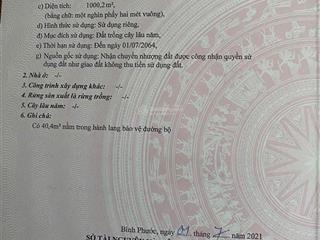 c) Diện tích: 1000,2m²,
(bằng chữ: một nghìn phẩy hai mét vuông),
d) Hình thức sử dụng: Sử dụng riêng,
đ) Mục đích sử dụng: Đất trồng cây lâu năm,
e) Thời hạn sử dụng: Đến ngày 01/07/2064,
g) Nguồn gốc sử dụng: Nhận chuyển nhượng đất được công nhận quyền sử
dụng đất như giao đất không thu tiền sử dụng đất.
2. Nhà ở: -/-
3. Công trình xây dựng khác: -/-
4. Rừng sản xuất là rừng trồng: -/-
5. Cây lâu năm: -/-
6. Ghi chú:
Có 40,4m² nằm trong hành lang bảo vệ đường bộ
Bình Phước, ngày 01 tháng 7 năm 2021
SỞ TÀI NGUYÊN